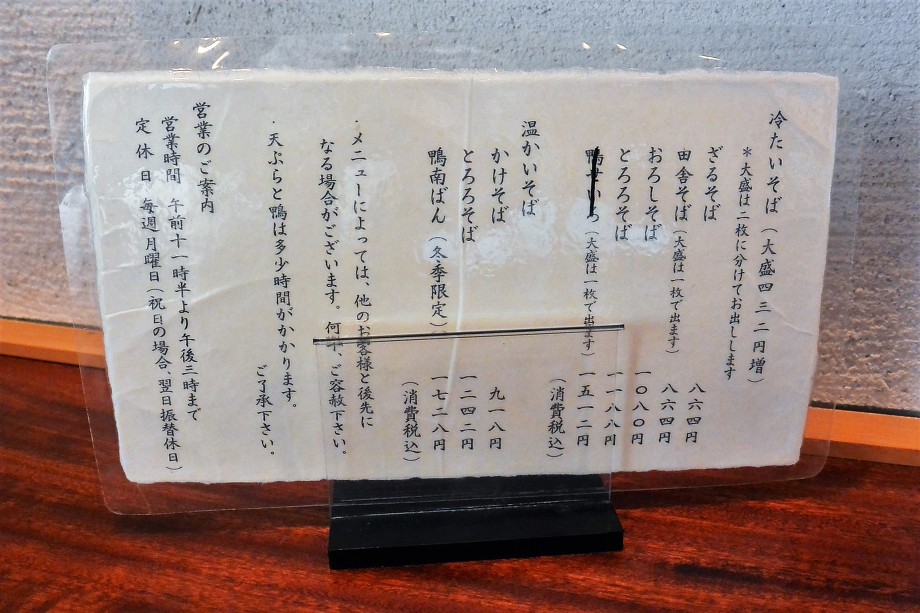 冷たいそば(大盛四三二円増)
＊大盛は二枚に分けてお出しします
ざるそば 八六四円
田舎そば(大盛は一枚で出ます) 八六四円
おろしそば 一〇八〇円
とろろそば 一一八八円
鴨せいろ(大盛は一枚で出ます) 一五一二円
(消費税込)
温かいそば
かけそば 九一八円
とろろそば 一二四二円
鴨南ばん(冬季限定) 一七二八円
(消費税込)
・メニューによっては、他のお客様と後先に
なる場合がございます。何卒、ご容赦下さい。
・天ぷらと鴨は多少時間がかかります。
ご了承下さい。
営業のご案内
営業時間 午前十一時半より午後三時まで
定休日 毎週月曜日(祝日の場合、翌日振替休日)